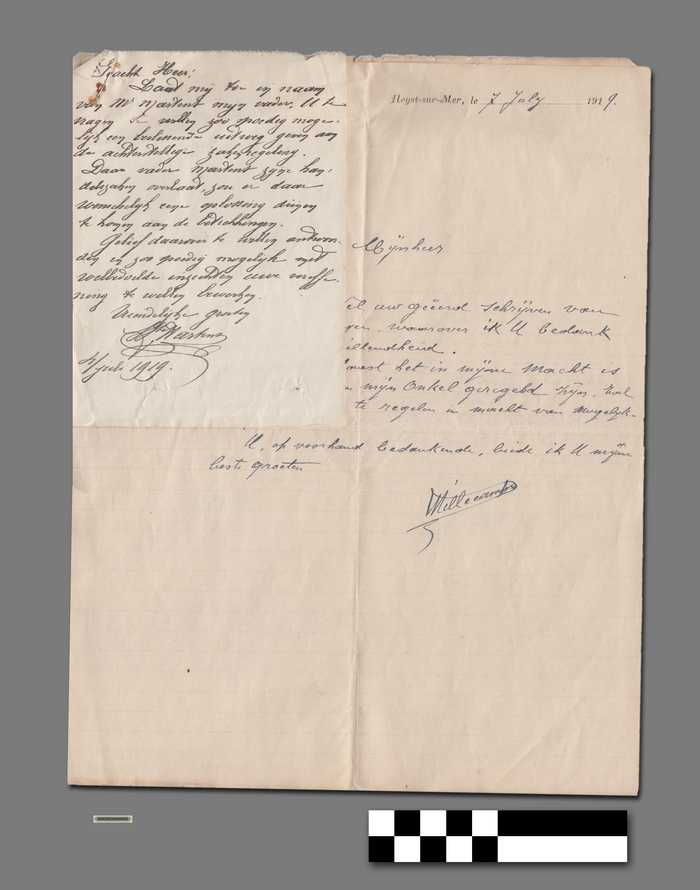 Geacht Heer!
Laat mij toe in naam
van Mr Martens mijn vader, U te
vragen te willen zoo spoedig moge-
lijk een beslissende uitweg geven aan
de achterstellige zakenregeling.
Daar vader Martens zijne han-
delszaken overlaat, zou er daar
wenschelijk eene oplossing dienen
te komen aan de betrekkingen.
Gelief daarover te willen antwoor-
den en zoo spoedig mogelijk met
welbedoelde inzichten uwe meffe-
ning te willen bewerken.
Vriendelijke groeten
Martens
4 Juli 1919.
Heyst-sur-Mer, le 7 July 1919.
Mijnheer
uw geëerd schrijven van
waarover ik U bedank
het in mijne macht is
mijn Onkel geregeld zijn, zal
te regelen in macht van mogelijk-
U, op voorhand bedankende, biede ik U mijne
beste groeten